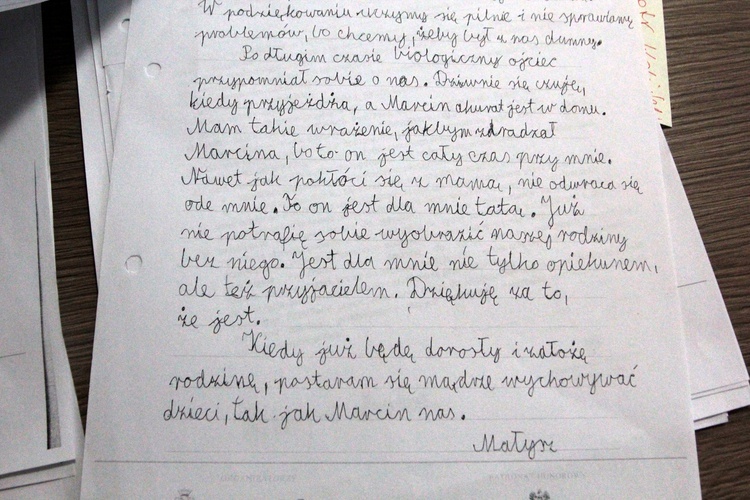 W podziękowaniu uczymy się pilnie i nie sprawiamy
problemów, bo chcemy, żeby był z nas dumny.
Po długim czasie biologiczny ojciec
przypomniał sobie o nas. Dziwnie się czuję,
kiedy przyjeżdża, a Marcin akurat jest w domu.
Mam takie wrażenie, jakbym zdradzał
Marcina, bo to on jest cały czas przy mnie.
Nawet jak pokłóci się z mamą, nie odwraca się
ode mnie. To on jest dla mnie tatą. Już
nie potrafię sobie wyobrazić naszej rodziny
bez niego. Jest dla mnie nie tylko opiekunem,
ale też przyjacielem. Dziękuję za to,
że jest.
Kiedy już będę dorosły i założę
rodzinę, postaram się mądrze wychowywać
dzieci, tak jak Marcin nas.
Matysz
ORGANIZATORZY
PATRONAT HONOROWY